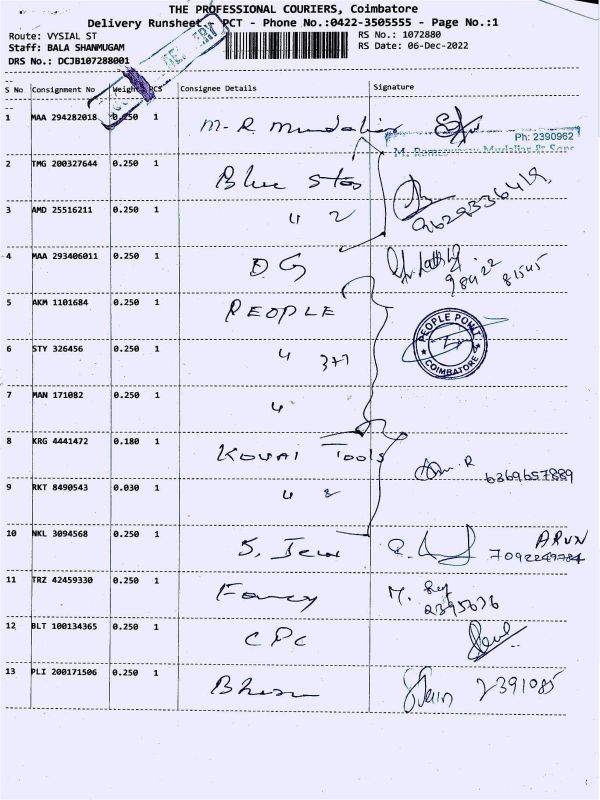 THE PROFESSIONAL COURIERS, Coimbatore
Delivery Runsheet - PCT - Phone No.:0422-3505555 - Page No.:1
Route: VYSIAL ST RS No.: 1072880
Staff: BALA SHANMUGAM RS Date: 06-Dec-2022
DRS No.: DCJB107288001
S No Consignment No Weight PCS Consignee Details Signature
1 MAA 294282018 0.250 1 M-R Mudaliar
Ph: 2390962
M. Ramaswamy Mudaliar & Sons
2 TMG 200327644 0.250 1 Blue Star
3 AMD 25516211 0.250 1 " 2
4 MAA 293406011 0.250 1 DG 98422 81545
5 AKM 1101684 0.250 1 PEOPLE
PEOPLE POINT COIMBATORE
6 STY 326456 0.250 1 "
7 MAN 171082 0.250 1 "
8 KRG 4441472 0.180 1 KOVAI Tools R 6369657889
9 RKT 8490543 0.030 1 " 2
10 NKL 3094568 0.250 1 S. ARUN
11 TRZ 42459330 0.250 1 Fancy M. 2395676
12 BLT 100134365 0.250 1 CPC
13 PLI 200171506 0.250 1 2391085